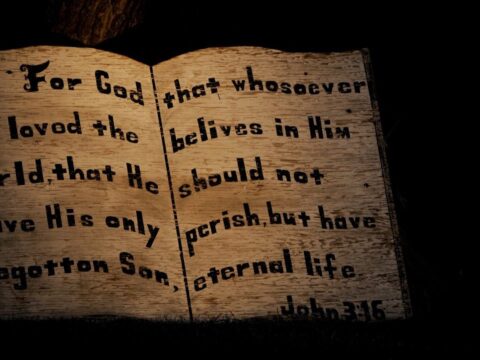 For God
loved the
rld,that He
ve His only
gotton Son,
that whosoever
belives in HiM
should not
perish,but have
eternal life
John 3:16